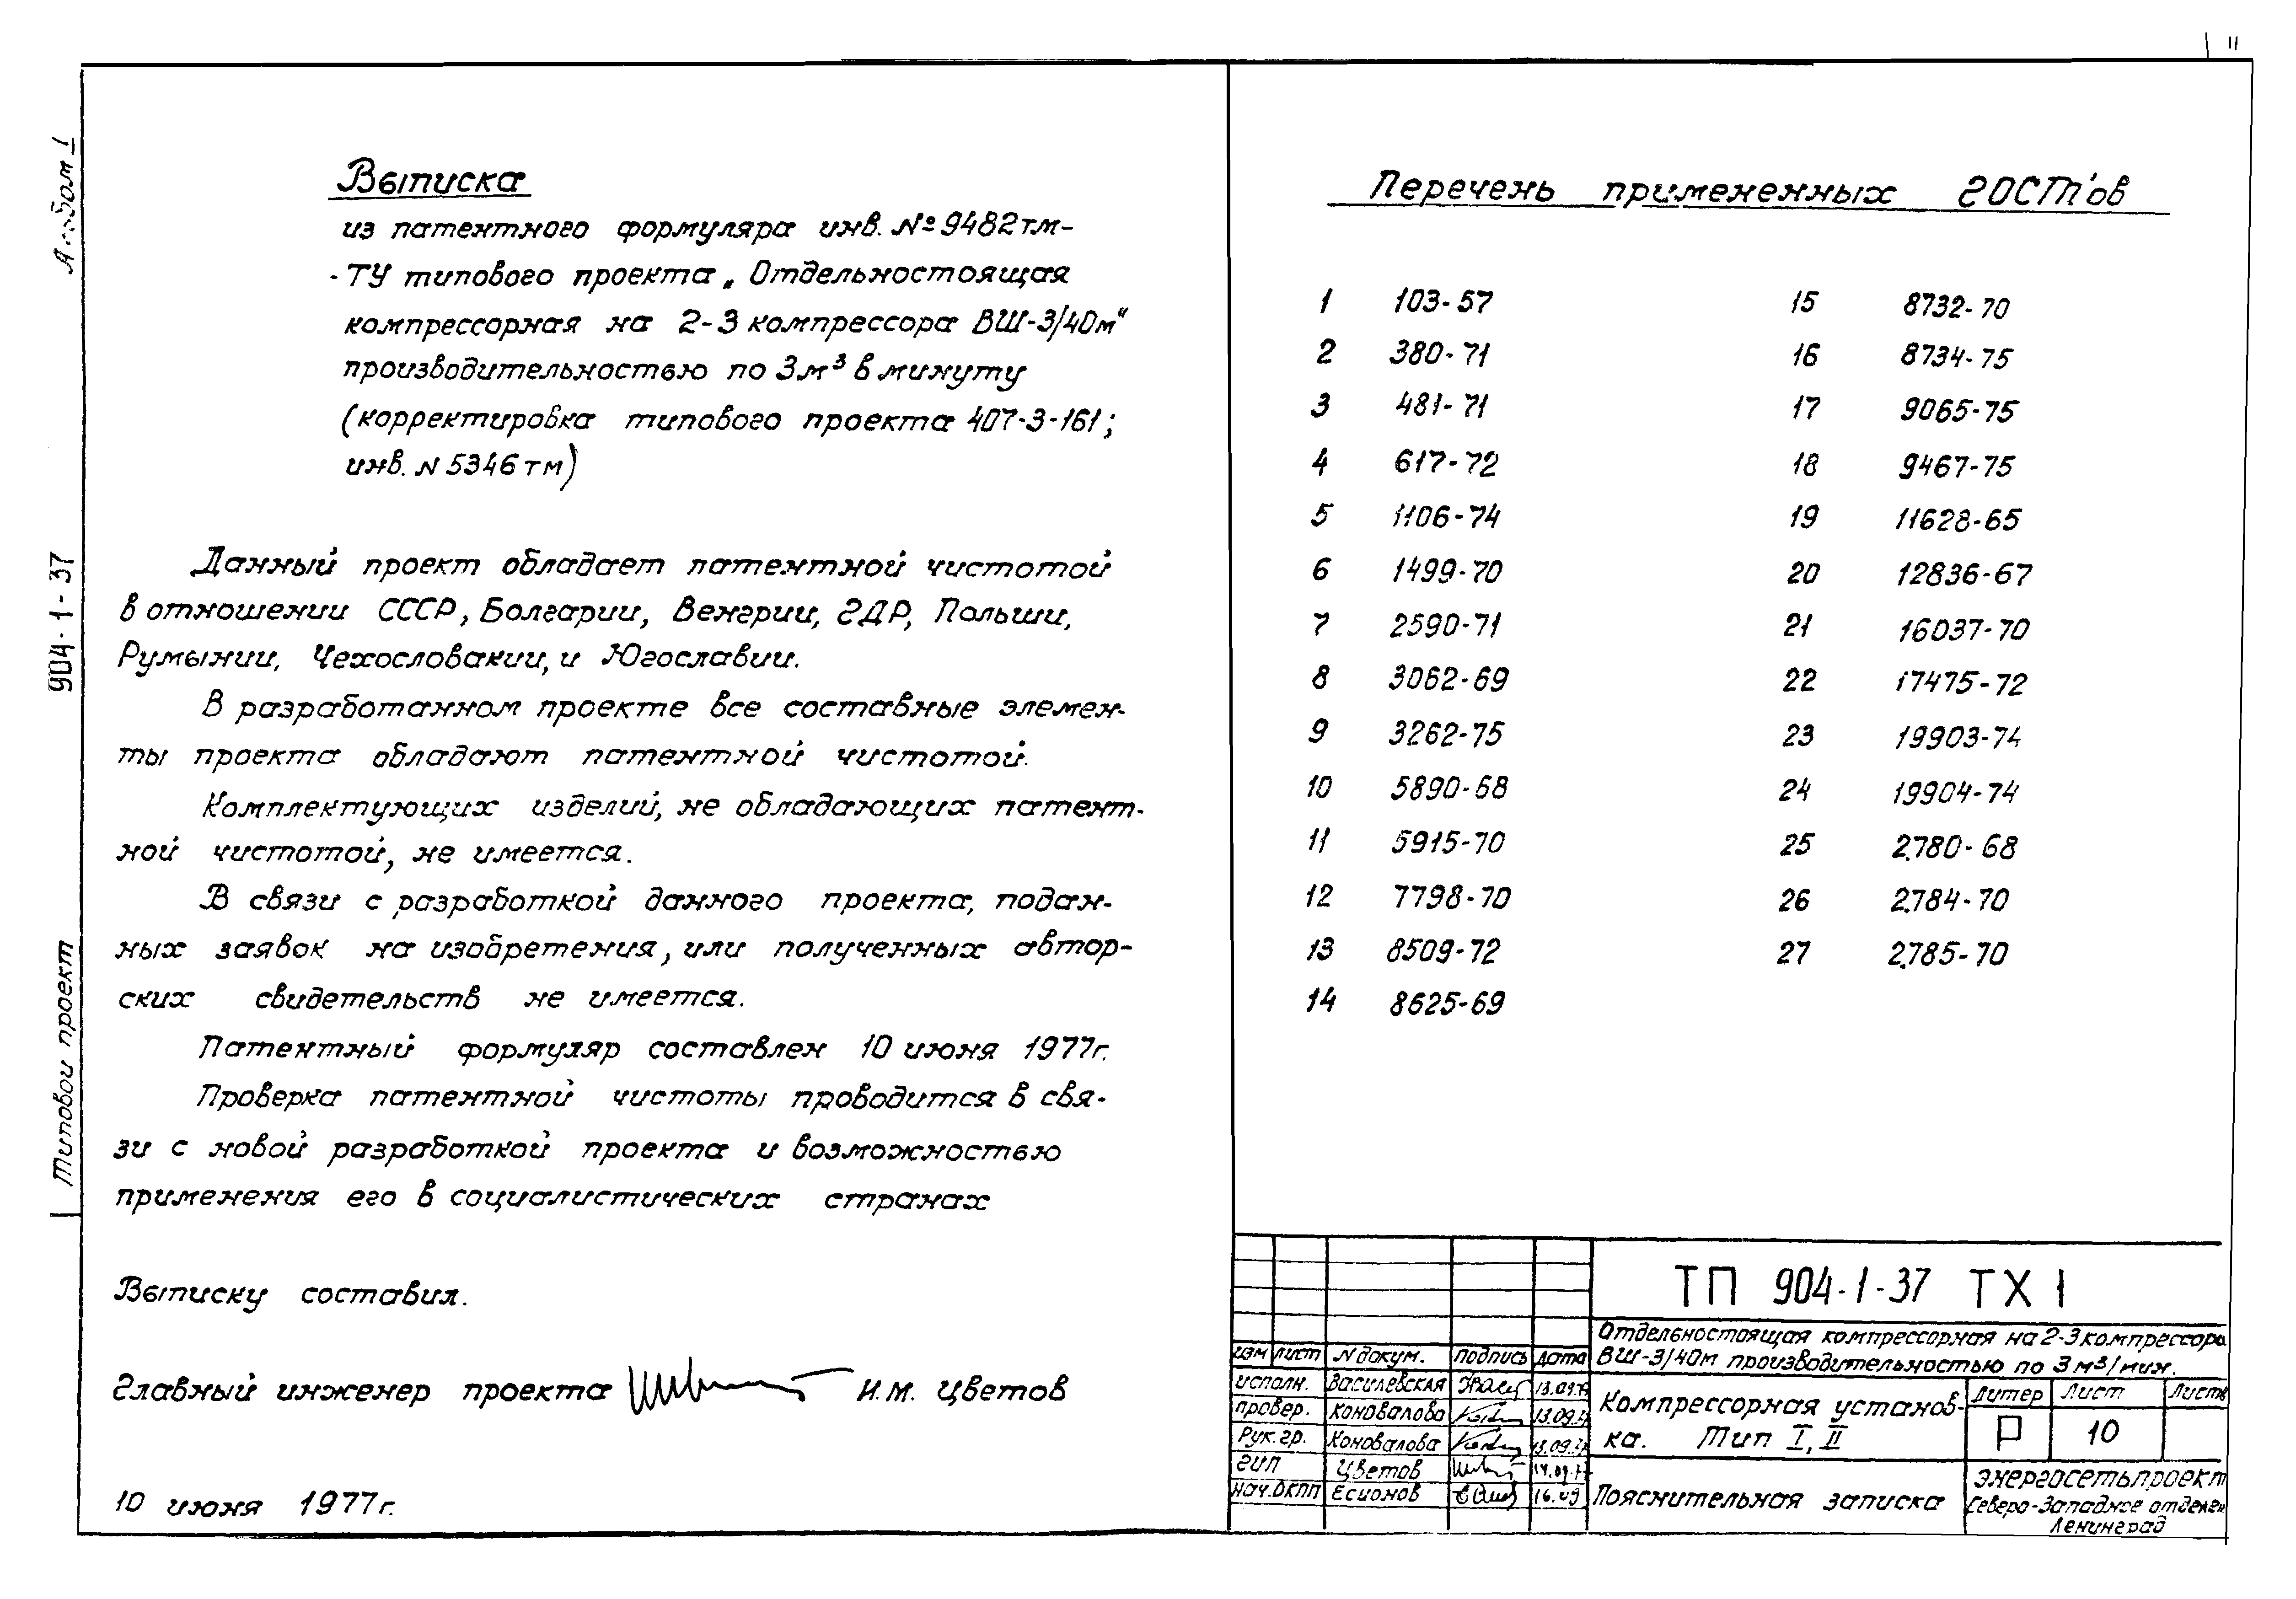 11
Альбом I
904-1-37
Типовой проект
Выписка
из патентного формуляра инв. № 9482тм-
-ТУ типового проекта „Отдельностоящая
компрессорная на 2-3 компрессора ВШ-3/40м"
производительностью по 3м³ в минуту
(корректировка типового проекта 407-3-161;
инв. N 5346тм)
Данный проект обладает патентной чистотой
в отношении СССР, Болгарии, Венгрии, ГДР, Польши,
Румынии, Чехословакии, и Югославии.
В разработанном проекте все составные элемен-
ты проекта обладают патентной чистотой.
Комплектующих изделий, не обладающих патент-
ной чистотой, не имеется.
В связи с разработкой данного проекта, подан-
ных заявок на изобретения, или полученных автор-
ских свидетельств не имеется.
Патентный формуляр составлен 10 июня 1977г.
Проверка патентной чистоты проводится в свя-
зи с новой разработкой проекта и возможностью
применения его в социалистических странах
Выписку составил.
Главный инженер проекта И.М. Цветов
10 июня 1977г.
Перечень примененных ГОСТ'ов
1 103-57
2 380-71
3 481-71
4 617-72
5 1106-74
6 1499-70
7 2590-71
8 3062-69
9 3262-75
10 5890-68
11 5915-70
12 7798-70
13 8509-72
14 8625-69
15 8732-70
16 8734-75
17 9065-75
18 9467-75
19 11628-65
20 12836-67
21 16037-70
22 17475-72
23 19903-74
24 19904-74
25 2.780-68
26 2.784-70
27 2.785-70
ТП 904-1-37 ТХ I
Отдельностоящая компрессорная на 2-3 компрессора
ВШ-3/40м производительностью по 3 м³/мин.
изм лист N докум. подпись дата
исполн. Василевская 13.09.77
провер. Коновалова 13.09.77
Рук.гр. Коновалова 13.09.77
ГИП Цветов 14.09.77
нач.ОКПП Есионов 16.09
Компрессорная установ-
ка. Тип I, II
Литер Лист Листов
Р 10
Пояснительная записка
Энергосетьпроект
Северо-Западное отделен
Ленинград